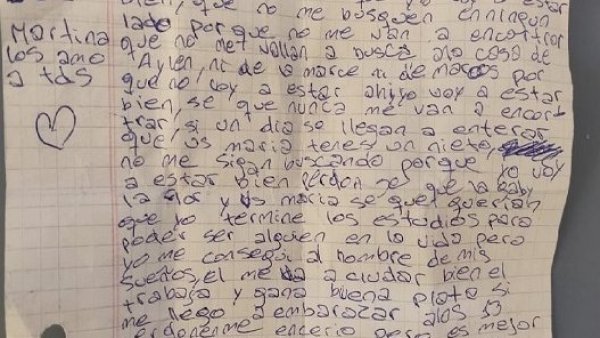 Martina
los amo
a tds
bien, que no me busquen en ningun
lado por que no me van a encontrar
que no me vallan a busca ala casa de
Aylen, ni de la marce ni de marcos por
que no voy a estar ahi yo voy a estar
bien, se que nunca me van a encont
trar, si un dia se llegan a enterar
que vs maria tenes un nieto,
no me sigan buscando porque yo voy
a estar bien perdon se que la gaby
la flor y vs maria se que querian
que yo termine los estudios para
poder ser alguien en la vida pero
yo me consegui al hombre de mis
sueños, el me va a ciudar bien el
trabaja y gana buena plata si
me llego a embarazar alos 53
perdonenme encerio pero es mejor